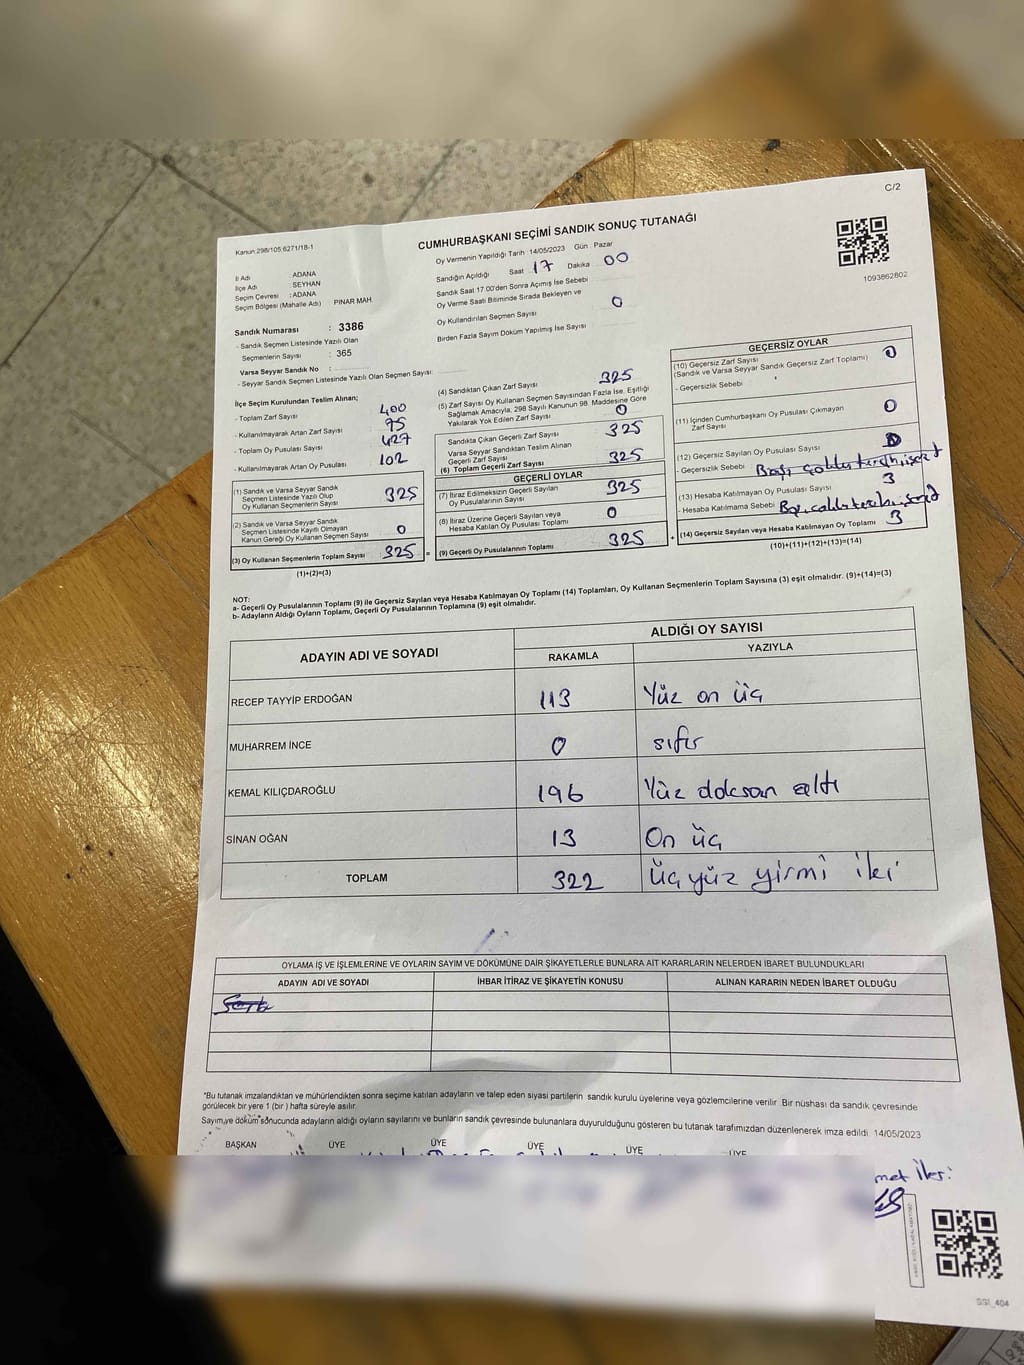 C/2
Kanun:298/105;6271/18-1
CUMHURBAŞKANI SEÇİMİ SANDIK SONUÇ TUTANAĞI
1093862802
İl Adı : ADANA
İlçe Adı : SEYHAN
Seçim Çevresi : ADANA
Seçim Bölgesi (Mahalle Adı) PINAR MAH.
Oy Vermenin Yapıldığı Tarih :14/05/2023 Gün : Pazar
Sandığın Açıldığı Saat 17 Dakika 00
Sandık Saat 17:00'den Sonra Açımış İse Sebebi
Oy Verme Saati Bitiminde Sırada Bekleyen ve
Oy Kullandırılan Seçmen Sayısı 0
Birden Fazla Sayım Döküm Yapılmış İse Sayısı
Sandık Numarası : 3386
- Sandık Seçmen Listesinde Yazılı Olan
Seçmenlerin Sayısı : 365
Varsa Seyyar Sandık No :
- Seyyar Sandık Seçmen Listesinde Yazılı Olan Seçmen Sayısı:
İlçe Seçim Kurulundan Teslim Alınan;
- Toplam Zarf Sayısı 400
- Kullanılmayarak Artan Zarf Sayısı 75
- Toplam Oy Pusulası Sayısı 427
- Kullanılmayarak Artan Oy Pusulası 102
(1) Sandık ve Varsa Seyyar Sandık
Seçmen Listesinde Yazılı Olup
Oy Kullanan Seçmenlerin Sayısı 325
(2) Sandık ve Varsa Seyyar Sandık
Seçmen Listesinde Kayıtlı Olmayan
Kanun Gereği Oy Kullanan Seçmen Sayısı 0
(3) Oy Kullanan Seçmenlerin Toplam Sayısı 325 =
(1)+(2)=(3)
(4) Sandıktan Çıkan Zarf Sayısı 325
(5) Zarf Sayısı Oy Kullanan Seçmen Sayısından Fazla İse, Eşitliği
Sağlamak Amacıyla, 298 Sayılı Kanunun 98. Maddesine Göre
Yakılarak Yok Edilen Zarf Sayısı 0
Sandıkta Çıkan Geçerli Zarf Sayısı 325
Varsa Seyyar Sandıktan Teslim Alınan
Geçerli Zarf Sayısı
(6) Toplam Geçerli Zarf Sayısı 325
GEÇERLİ OYLAR
(7) İtiraz Edilmeksizin Geçerli Sayılan
Oy Pusulalarının Sayısı 325
(8) İtiraz Üzerine Geçerli Sayılan veya
Hesaba Katılan Oy Pusulası Toplamı 0
(9) Geçerli Oy Pusulalarının Toplamı 325 +
GEÇERSİZ OYLAR
(10) Geçersiz Zarf Sayısı 0
(Sandık ve Varsa Seyyar Sandık Geçersiz Zarf Toplamı)
- Geçersizlik Sebebi
(11) İçinden Cumhurbaşkanı Oy Pusulası Çıkmayan
Zarf Sayısı 0
(12) Geçersiz Sayılan Oy Pusulası Sayısı
- Geçersizlik Sebebi
(13) Hesaba Katılmayan Oy Pusulası Sayısı 3
- Hesaba Katılmama Sebebi
(14) Geçersiz Sayılan veya Hesaba Katılmayan Oy Toplamı 3
(10)+(11)+(12)+(13)=(14)
NOT:
a- Geçerli Oy Pusulalarının Toplamı (9) ile Geçersiz Sayılan veya Hesaba Katılmayan Oy Toplamı (14) Toplamları, Oy Kullanan Seçmenlerin Toplam Sayısına (3) eşit olmalıdır. (9)+(14)=(3)
b- Adayların Aldığı Oyların Toplamı, Geçerli Oy Pusulalarının Toplamına (9) eşit olmalıdır.
ADAYIN ADI VE SOYADI
ALDIĞI OY SAYISI
RAKAMLA YAZIYLA
RECEP TAYYİP ERDOĞAN 113 Yüz on üç
MUHARREM İNCE 0 sıfır
KEMAL KILIÇDAROĞLU 196 Yüz doksan altı
SİNAN OĞAN 13 On üç
TOPLAM 322 Üç yüz yirmi iki
OYLAMA İŞ VE İŞLEMLERİNE VE OYLARIN SAYIM VE DÖKÜMÜNE DAİR ŞİKAYETLERLE BUNLARA AİT KARARLARIN NELERDEN İBARET BULUNDUKLARI
ADAYIN ADI VE SOYADI İHBAR İTİRAZ VE ŞİKAYETİN KONUSU ALINAN KARARIN NEDEN İBARET OLDUĞU
*Bu tutanak imzalandıktan ve mühürlendikten sonra seçime katılan adayların ve talep eden siyasi partilerin sandık kurulu üyelerine veya gözlemcilerine verilir. Bir nüshası da sandık çevresinde
görülecek bir yere 1 (bir) hafta süreyle asılır.
Sayım ve döküm sonucunda adayların aldığı oyların sayılarını ve bunların sandık çevresinde bulunanlara duyurulduğunu gösteren bu tutanak tarafımızdan düzenlenerek imza edildi. 14/05/2023
BAŞKAN ÜYE ÜYE ÜYE ÜYE ÜYE
SSİ_404